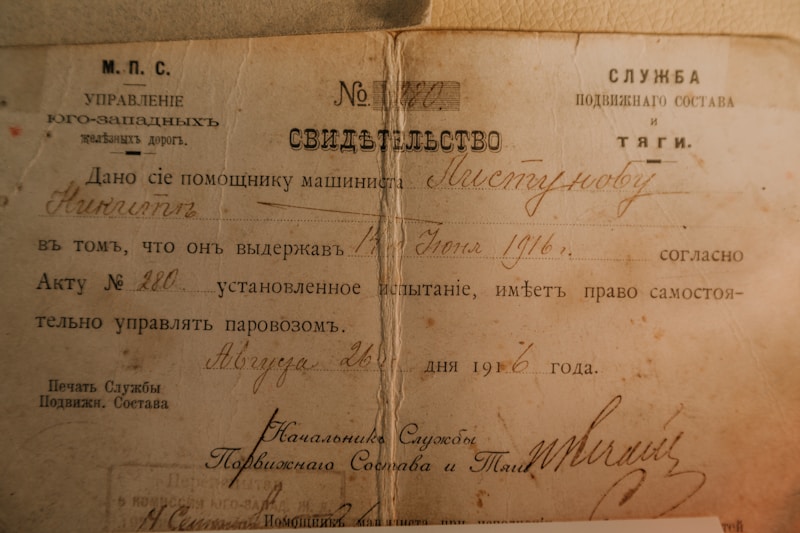 М. П. С.
УПРАВЛЕНІЕ
ЮГО-ЗАПАДНЫХЪ
желѣзныхъ дорогъ.
№ 280.
СЛУЖБА
ПОДВИЖНАГО СОСТАВА
и
ТЯГИ.
СВИДѢТЕЛЬСТВО
Дано сіе помощнику машиниста Пистунову
Никитѣ
въ томъ, что онъ выдержав 14 Іюня 1916 г. согласно
Акту № 280. установленное испытаніе, имѣетъ право самостоя-
тельно управлять паровозомъ.
Августа 26 дня 1916 года.
Печать Службы
Подвижн. Состава
Начальникъ Службы
Подвижнаго Состава и Тяги
в комиссіи Юго-Запад. ж. д.
Помощникъ машиниста при